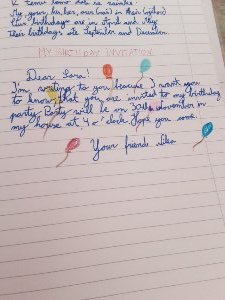 My
birthdays are in April and May
Their birthdays are September and December.
MY BIRTHDAY INVITATION
Dear Sara!
I'm writing to you because I want you
to know that you are invited to my birthday
party. Party will be on 30th November in
my house at 4 o'clock. Hope you come.
Your friend